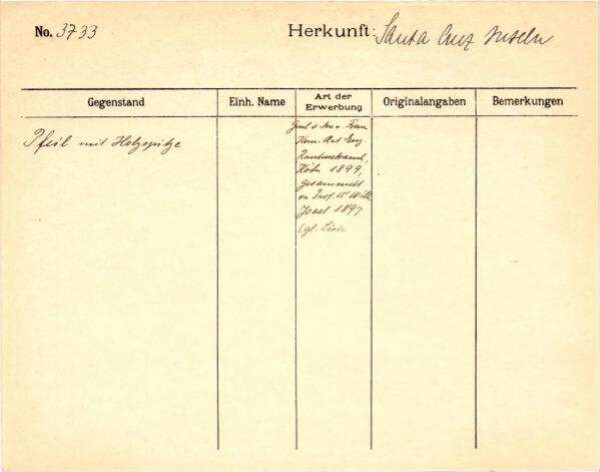 No. 3733
Herkunft: Santa Cruz Inseln
Gegenstand
Einh. Name
Art der Erwerbung
Originalangaben
Bemerkungen
Pfeil mit Holzspitze
Frau
Rautenstrauch,
Köln 1899,
gesammelt
Prof. Dr Wilh.
Joest 1897